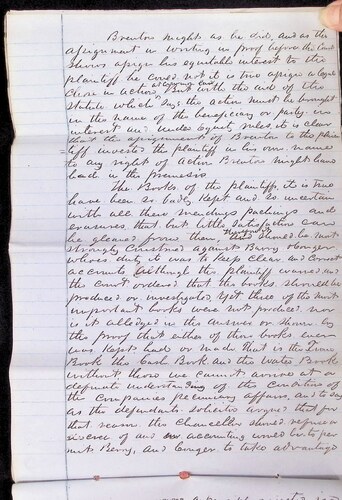 Brenton might as he did, and as the
assignment in writing in proof before the Court
Shows assign his equitable interest to the
plaintiff he could not it is true assign a legal
Chose in action, at Common law But with the aid of the
statute which says the action must be brought
in the name of the beneficiary or party in
interest and under equity rules it is clear
that the assignment of Brenton to the plain
=tiff invests the plaintiff in his own name
to any right of action Brenton might have
had in the premises
The Books of the plaintiff, it is true
have been so badly Kept and so uncertain
with all their mendings patchings and
erasures that but little Satisfaction can
be gleaned from them they should be most
strongly Construed against Berry & Conger
whose duty it was to Keep clear and correct
accounts Although the plaintiff and
the court ordered that the books should be
produced or investigated Yet three of the most
important books were not produced nor
is it alledged in the answer or shown by
the proof that either of these books ever
was Kept or made that is the Time
Book the Cash Book and the Water Book
without those we cannot arrive at a
definate understanding of the Condition of
the Companies pecuniary affairs, and to say
as the defendants solicitor argued that for
that reason the Chancellor should refuse a
decree of and accounting would be to per
mit Berry, and Conger to take advantage